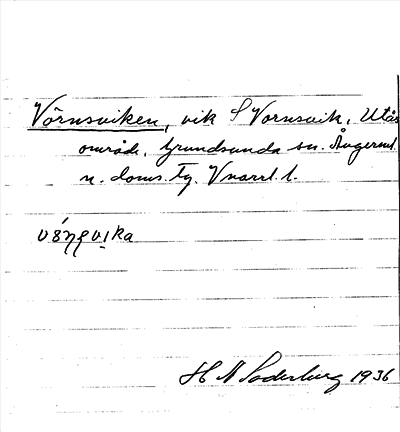 Vörnsviken, vik S Vornsvik, Utås
område, Grundsunda sn. Ångerml.
n. doms. tg. Vnorrl. l.
H N Söderberg 1936